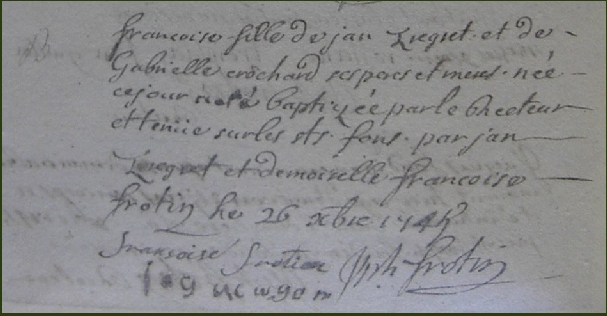 francoise fille de jan Lregret et de
Gabrielle crochard ses pers et mers née
ce jour a eté baptizée par le Recteur
et tenüe sur les sts fons par jan
Lregret et demoiselle francoise
frotin le 26 xbre
françoise frotin frotin